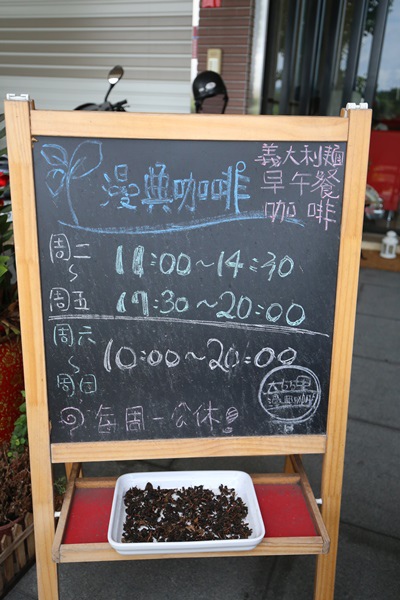 漫典咖啡
義大利麵
早午餐
咖啡
周二
~
周五
11:00~14:30
17:30~20:00
周六
~
周日
10:00~20:00
每周一公休!